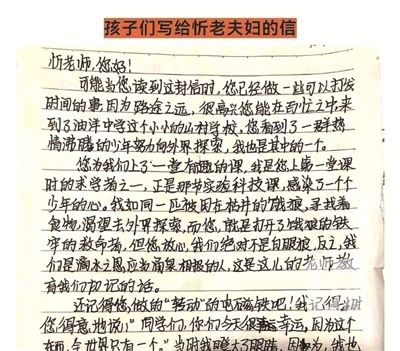 孩子们写给忻老夫妇的信
忻老师，您好！
可能当您读到这封信时，您已经做一些可以打发
时间的事，因为路途之远，很高兴您能在百忙之中来
到了油洋中学这个小小的山村学校，您看到了一群热
情沸腾的少年努力向外界探索，我也是其中的一个。
您为我们上了一堂有趣的课，我是您上第一堂课
时的求学者之一，正是那节实验科技课，感染了一个个
少年的心。我如同一匹被困在枯井的饿狼，寻找着
食物，渴望去外界探索，而您，就是打开了饿狼的铁
牢的救命者，但您放心，我们绝对不是白眼狼，反之，我
们是滴水之恩应当涌泉相报的人，这是这儿的老师教
育我们切记的话。
还记得您做的"转动"的电磁铁吧！我记得当时
您得意地说："同学们，你们今天很幸运，因为这个
东西，全世界只有一个。"当时我瞪大了眼睛，因为，我也